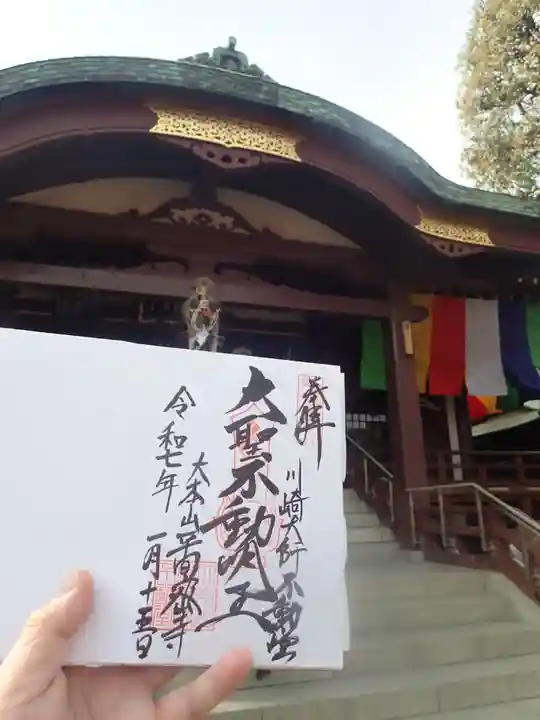 奉拝
川崎大師 不動堂
大聖不動明王
大本山平間寺
令和七年
一月十五日